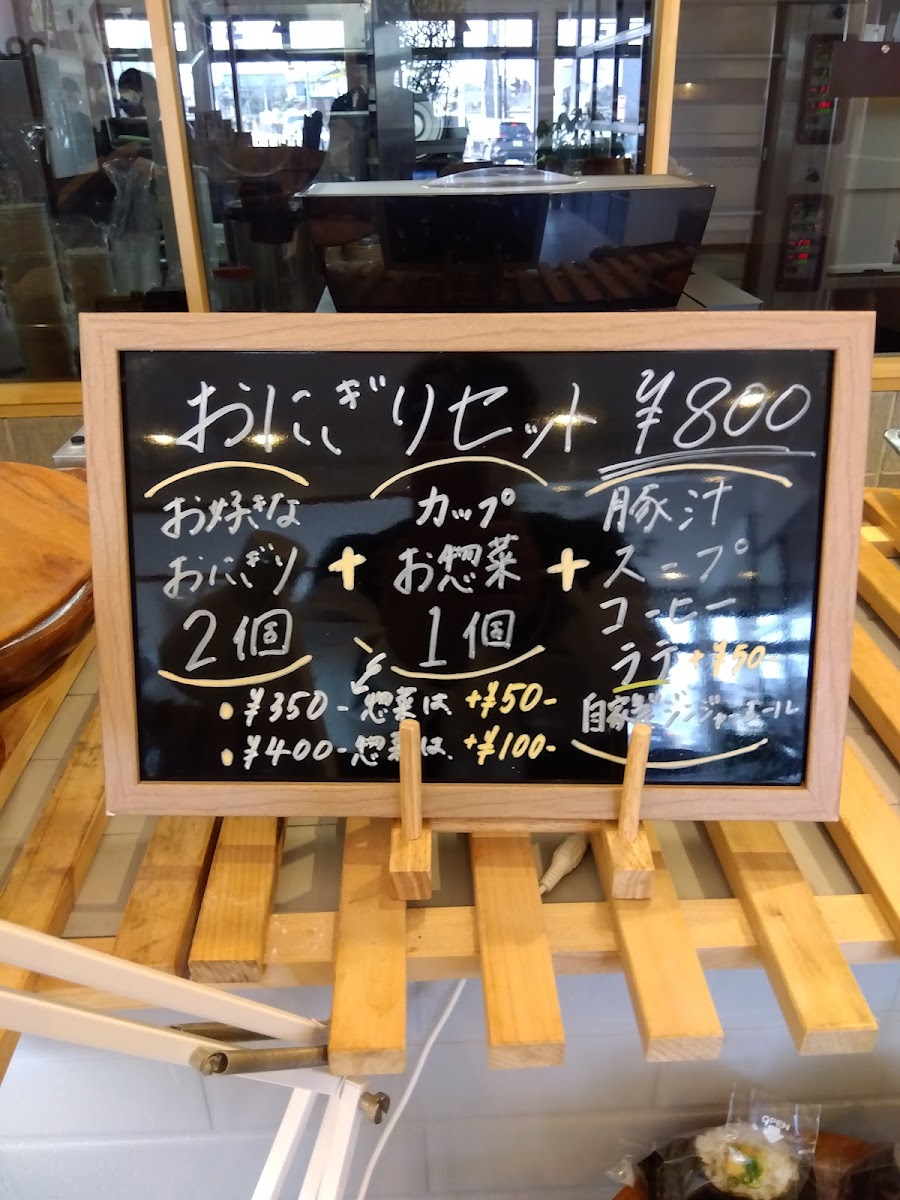 おにぎりセット ¥800
お好きな
おにぎり
2個
+
カップ
お惣菜
1個
+
豚汁
スープ
コーヒー
ラテ+¥50-
自家製ジンジャーエール
・¥350-惣菜は +¥50-
・¥400-惣菜は +¥100-
OPEN